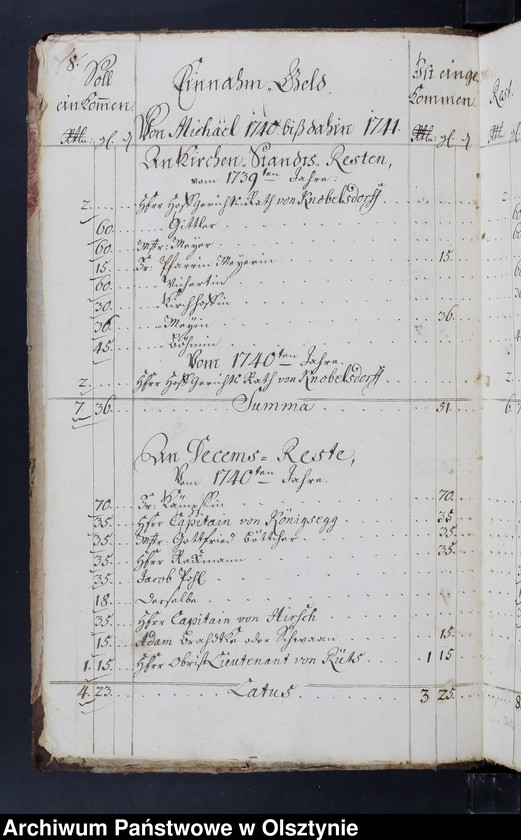 8.
Soll einkom̄en. Einnahm-Geld. Ist einge kommen. Rest.
Von Michäel 1740. biß dahin 1741.
Rthl: gl. d. Rthl: gl. d.
An Kirchen-Stands-Resten,
vom 1739ten Jahre:
2. Herr Hoff Gerichts-Rath von Knobelsdorff
60. Gittler
60. Mstr: Meyer
15. Fr. Pfarrin Meyerin 15.
60.
30. Kirchhoffin
36. Meyin 36.
45. Böhmin
Vom 1740ten Jahre.
2. Herr Hoff Gerichts Rath von Knobelsdorff
7. 36. Summa 51.
An Decems-Reste,
Vom 1740ten Jahre.
70. Fr: 70.
35. Herr Capitain von Königsegg 35
35. Mstr: Gottfried Böttcher 35.
35. Herr 35.
35. Jacob Pohl
18. Derselbe
35. Herr Capitain von Hirsch
15. Adam oder 15.
1. 15. Herr Obrist Lieutenant von Rüts 1 15
4. 23. Latus 3 25.
Archiwum Państwowe w Olsztynie